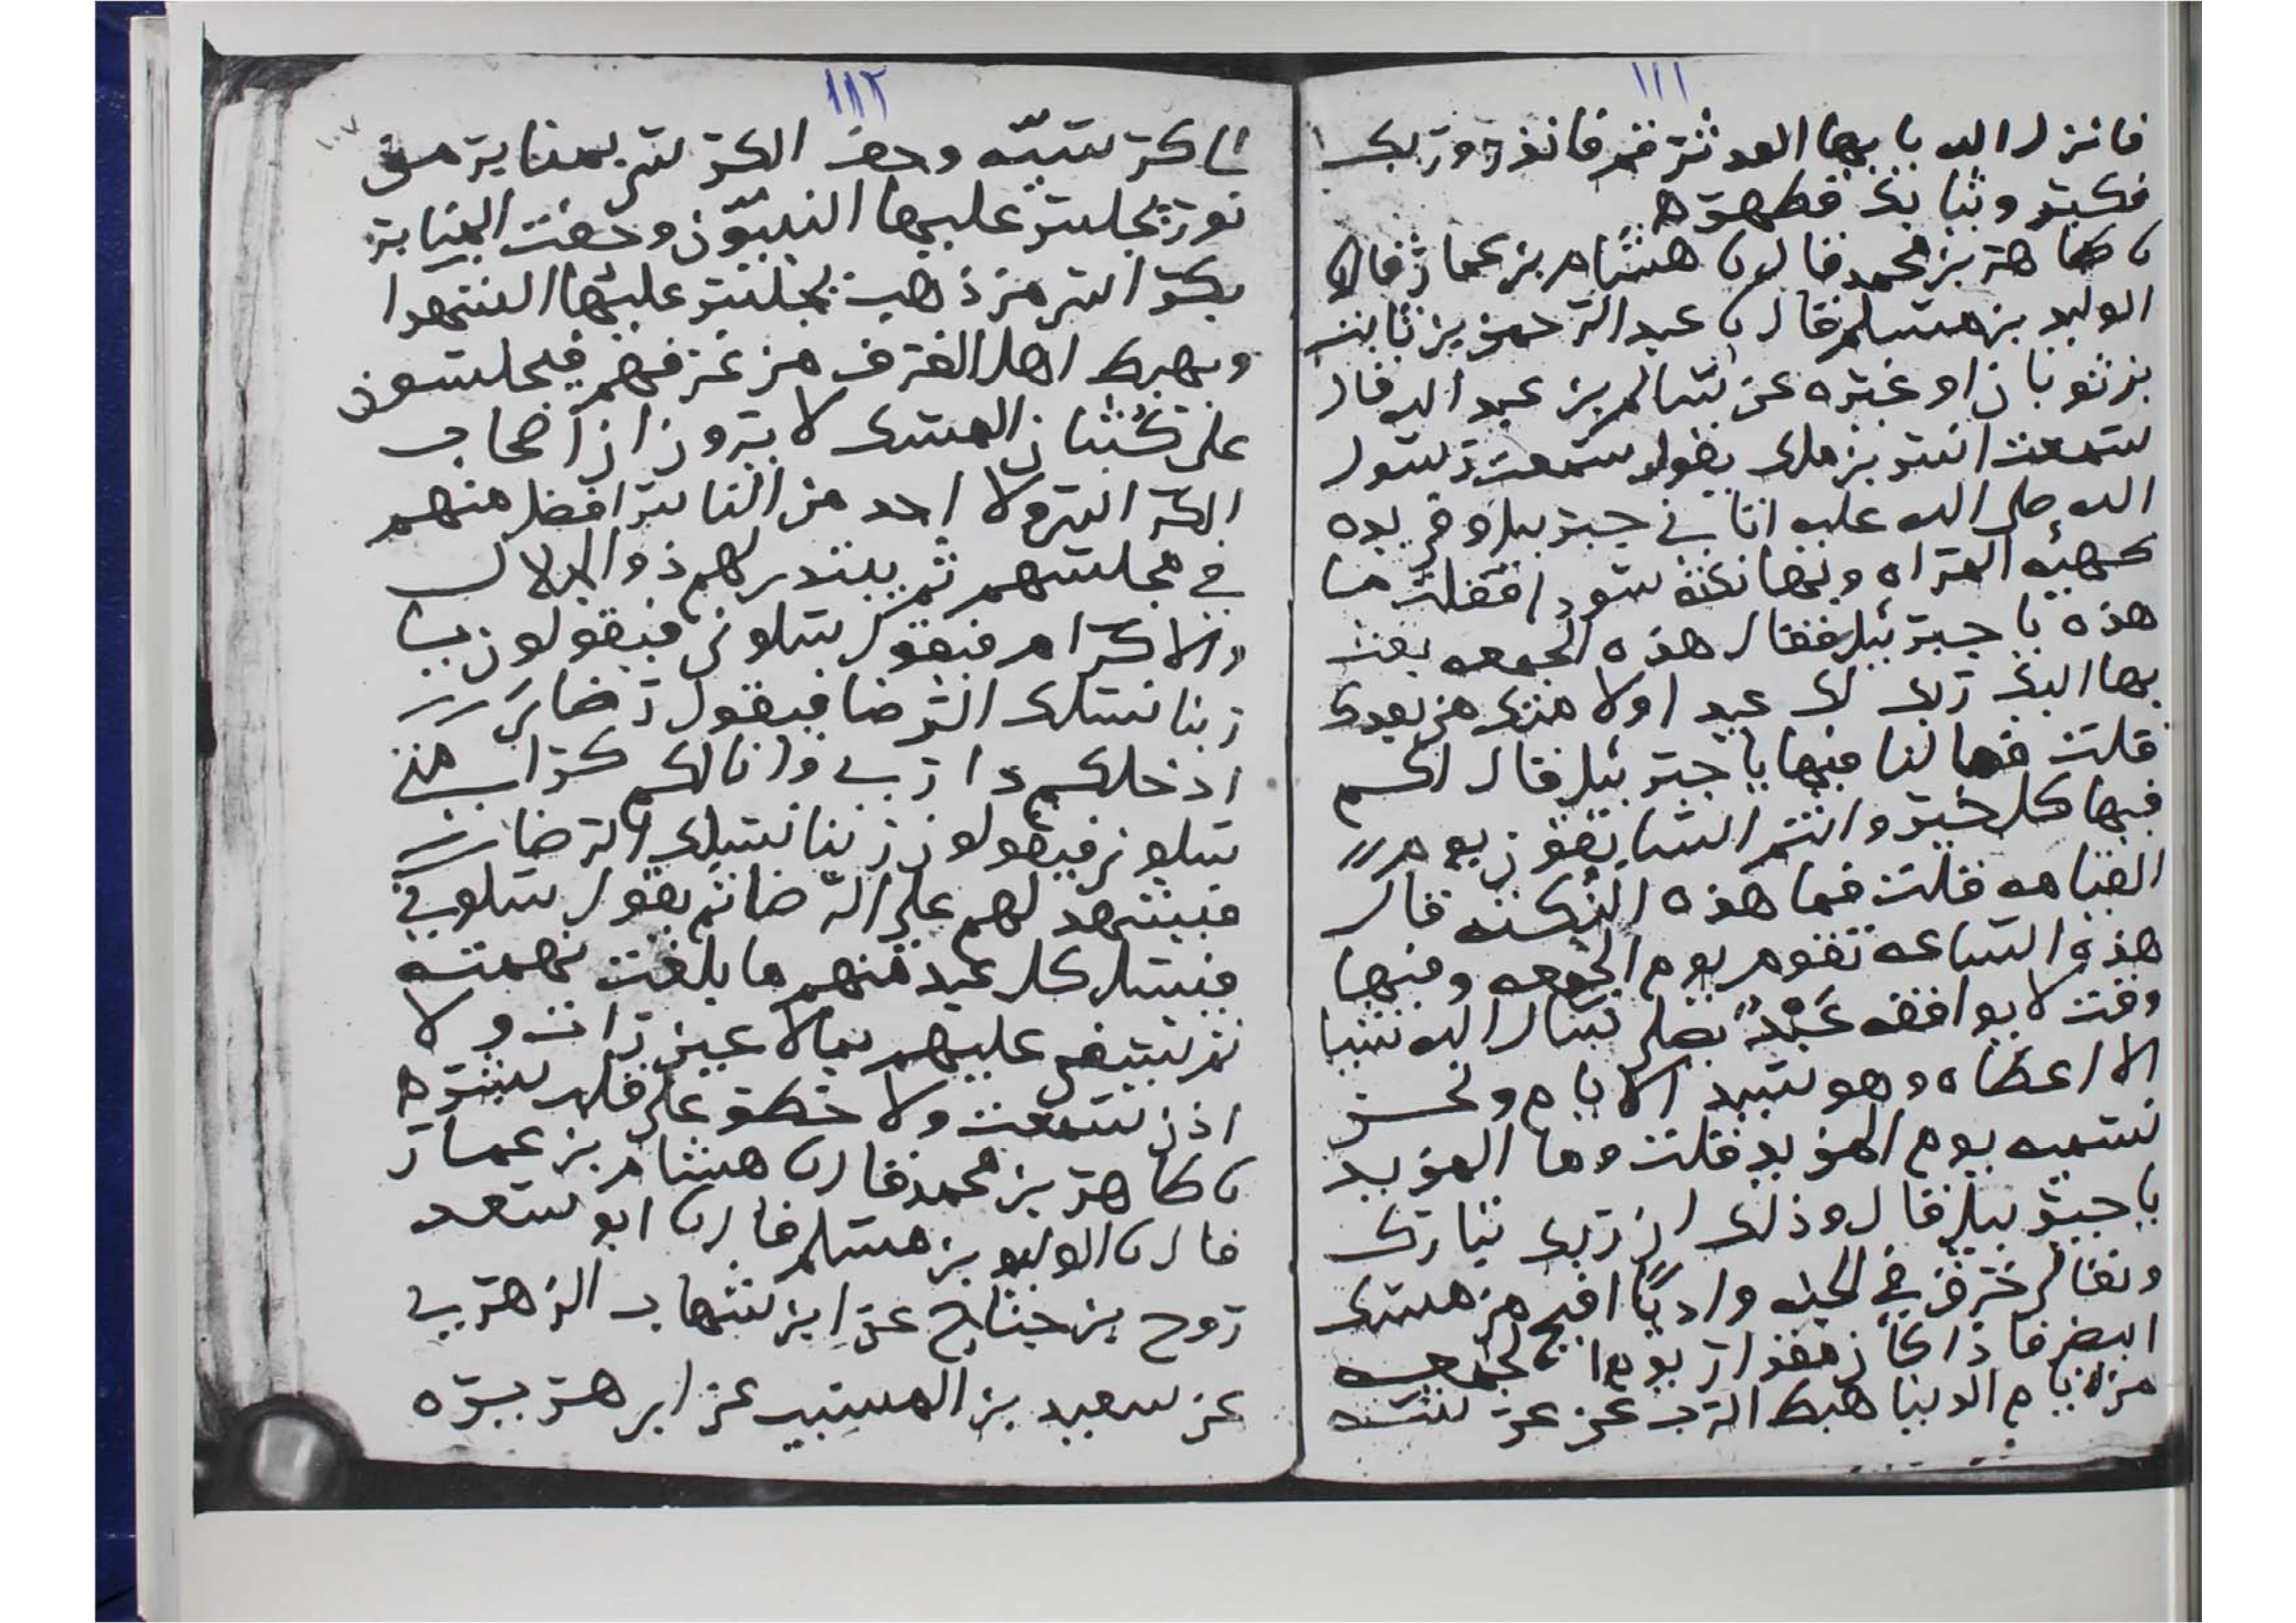 ١١١
فانزل الله يا يها المدثر قم فانذر وربك
فكبر وثيابك فطهر ه
نا طاهر بن محمد قال نا هشام بن عمار قال نا
الوليد بن مسلم قال نا عبد الرحمن بن ثابت
بن ثوبان او غيره عن سالم بن عبد الله قال
سمعت انس بن ملك يقول سمعت رسول
الله صلى الله عليه اتاني جبريل وفي يده
كهيئه المراه وفيها نكته سودا فقلت ما
هذه يا جبرئيل فقال هذه الجمعه بعث
بها اليك ربك لك عيدا ولامتك من بعدك
قلت فما لنا فيها يا جبرئيل قال لكم
فيها كل خير وانتم السابقون يوم
القيامه قلت فما هذه النكته قال
هذه الساعه تقوم يوم الجمعه وفيها
وقت لا يوافقه عبد يصلي يسال الله شيا
الا اعطاه وهو سيد الايام ونحن
نسميه يوم المزيد قلت وما المزيد
يا جبريل قال وذلك ان ربك تبارك
وتعالى خرق في الجنه واديا افيح من مسك
ابيض فاذا كان مقدار يوم الجمعه
من ايام الدنيا هبط الرب عز عن
١١٢
الى كرسيه وحف الكرسي بمنابر من
نور يجلس عليها النبيون وحفت المنابر
بكراسي من ذهب يجلس عليها الشهدا
ويهبط اهل الغرف من غرفهم فيجلسون
على كثبان المسك لا يرون ان اصحاب
الكراسي ولا احد من الناس افضل منهم
في مجلسهم ثم يبتدر لهم ذو الجلال
والاكرام فيقول سلوني فيقولون يا
ربنا نسلك الرضا فيقول رضاي
ادخلكم داري وانالكم كرامتي
سلوني فيقولون ربنا نسلك الرضا
فيشهد لهم على الرضا ثم يقول سلوني
فيسل كل عبد منهم ما بلغت نهمته
ثم يسعى عليهم بما لا عين رات ولا
اذن سمعت ولا خطر على قلب بشر ه
نا طاهر بن محمد قال نا هشام بن عمار
قال نا الوليد بن مسلم قال نا ابو سعد
روح بن جناح عن ابن شهاب الزهري
عن سعيد بن المسيب عن ابي هريره